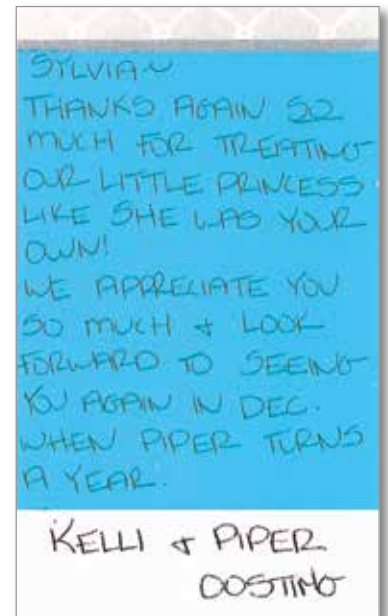 SYLVIA~
THANKS AGAIN SO
MUCH FOR TREATING
OUR LITTLE PRINCESS
LIKE SHE WAS YOUR
OWN!
WE APPRECIATE YOU
SO MUCH & LOOK
FORWARD TO SEEING
YOU AGAIN IN DEC.
WHEN PIPER TURNS
A YEAR.
KELLI & PIPER
OOSTING